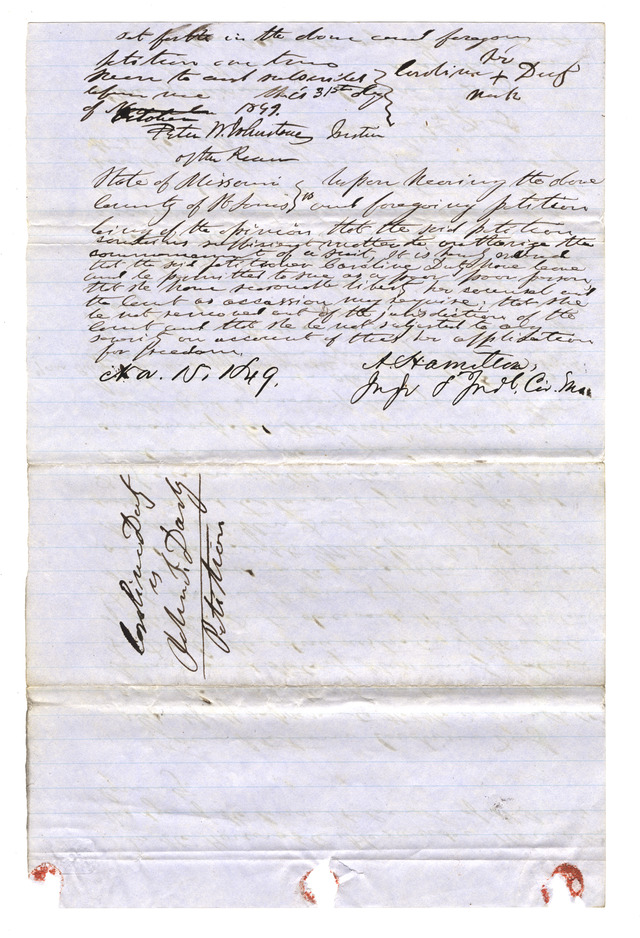 set forth in the above and foregoing
petition are true
Sworn to and subscribed } Caroline her + mark Duty
before me this 31st day
of October 1849.
Peter W. Johnstone Justice
of the Peace
State of Missouri } ss Upon hearing the above
County of St Louis and foregoing petition
being of the opinion that the said petition
contains sufficient matter to authorize the
commencement of a suit, It is ordered
that the said petitioner Caroline Duty have leave
and be permitted to sue as a poor person,
that she have reasonable liberty her counsel and
the Court as occassion may require, that she
be not removed out of the jurisdiction of the
Court and that she be not subjected to any
severity on account of this her application
for freedom.
Nov. 15, 1849. A. Hamilton,
Judge 8 Judl. Cir. Mo
Caroline Duty
vs
John F. Darby
Petition